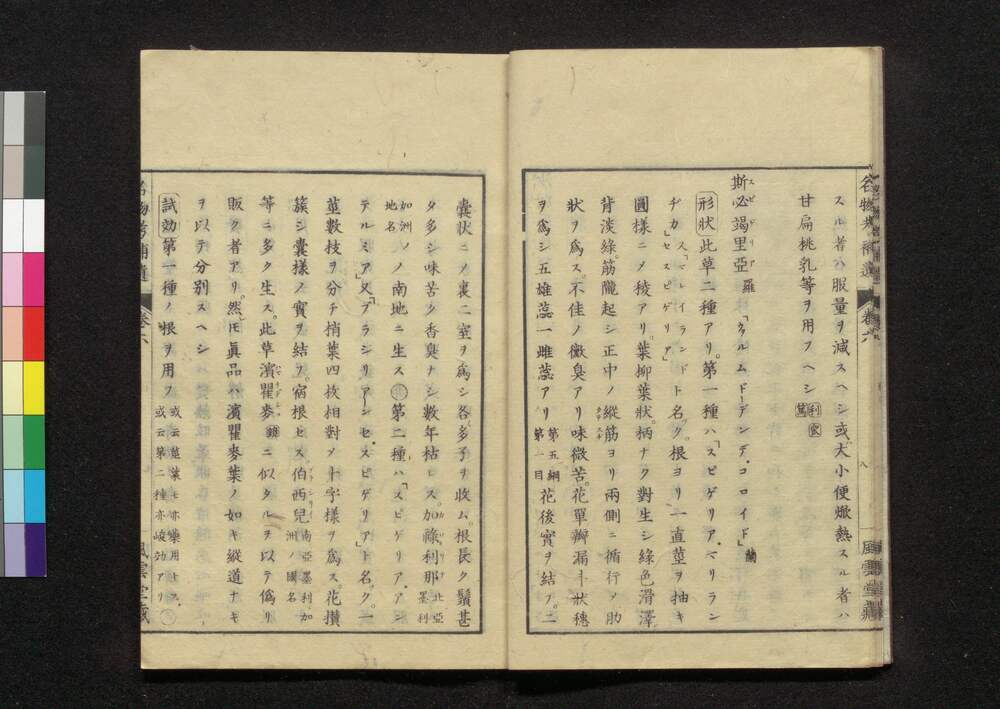 スル者ハ服量ヲ減スヘシ或ハ大小便焮熱スル者ハ
甘扁桃乳等ヲ用フヘシ
斯必竭里亞 羅 「ウルムドーデンデ・コロイド」蘭
スピゲリア
形狀 此草二種アリ。第一種ハ「スピゲリア・マリラン
ヂカ」「マレイランドセスピゲリア」ト名ク。根ヨリ一直莖ヲ抽キ
圓樣ニメ稜アリ。葉柳葉狀。柄ナク對生シ綠色滑澤
背淡綠。筋隴起シ正中ノ縱筋ヨリ兩側ニ循行ノ肋
狀ヲ爲ス。不佳ノ微臭アリ味微苦。花單瓣漏斗狀穗
ヲ爲シ五雄蕊一雌蕊アリ 第五綱第一目 花後實ヲ結フ。二
囊狀ニメ裏二室ヲ爲シ各多子ヲ收ム。根長ク鬚甚
タ多シ味苦ク香臭ナシ數年枯レス。加祿利那 北亞墨利
加洲ノ地名 ノ南地ニ生ス 第二種ハ「スピゲリア・アン
テルミア」又「ブラジリアーンセ・スピゲリア」ト名ク。一
莖數枝ヲ分チ梢葉四枚相對メ十字樣ヲ爲ス。花攅
簇シ囊樣ノ實ヲ結フ。宿根トス伯西兒 南亞墨利加洲ノ國名
等ニ多ク生ス。此草濱瞿麥ニ似タルヲ以テ僞リ
販ク者アリ。然ドモ眞品ハ濱瞿麥葉ノ如キ縱道ナキ
ヲ以テ分別スヘシ
試効 第一種ノ根ヲ用フ 或云莖葉モ亦藥用トス。或云第二種亦峻効アリ
名物考補遺 卷六 八 風雲堂藏
名物考補遺 卷六 風雲堂藏